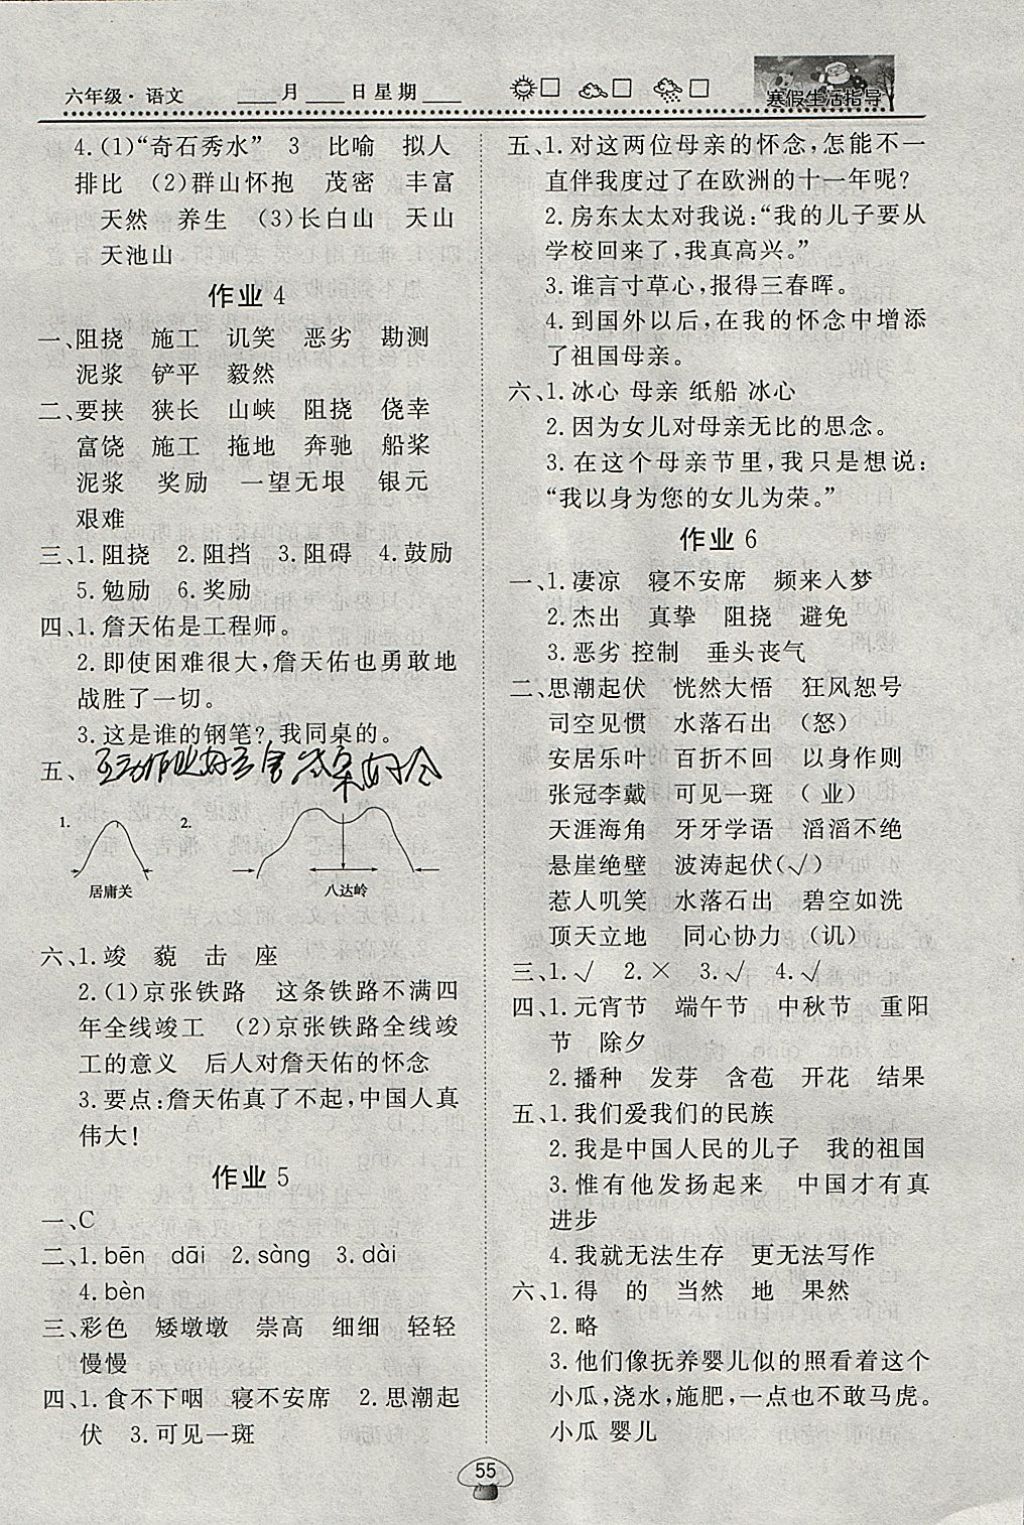 六年级·语文 ___月___日星期___
寒假生活指导
4.(1)“奇石秀水” 3 比喻 拟人
排比 (2)群山怀抱 茂密 丰富
天然 养生 (3)长白山 天山
天池山
作业4
一、阻挠 施工 讥笑 恶劣 勘测
泥浆 铲平 毅然
二、要挟 狭长 山峡 阻挠 侥幸
富饶 施工 拖地 奔驰 船桨
泥浆 奖励 一望无垠 银元
艰难
三、1.阻挠 2.阻挡 3.阻碍 4.鼓励
5.勉励 6.奖励
四、1.詹天佑是工程师。
2.即使困难很大,詹天佑也勇敢地
战胜了一切。
3.这是谁的钢笔? 我同桌的。
五、
1. 2.
居庸关 八达岭
六、1.竣 藐 击 座
2.(1)京张铁路 这条铁路不满四
年全线竣工 (2)京张铁路全线竣
工的意义 后人对詹天佑的怀念
3.要点:詹天佑真了不起,中国人真
伟大!
作业5
一、C
二、1.bēn dāi 2.sàng 3.dài
4.bèn
三、彩色 矮墩墩 崇高 细细 轻轻
慢慢
四、1.食不下咽 寝不安席 2.思潮起
伏 3.可见一斑
五、1.对这两位母亲的怀念,怎能不一
直伴我度过了在欧洲的十一年呢?
2.房东太太对我说:“我的儿子要从
学校回来了,我真高兴。”
3.谁言寸草心,报得三春晖。
4.到国外以后,在我的怀念中增添
了祖国母亲。
六、1.冰心 母亲 纸船 冰心
2.因为女儿对母亲无比的思念。
3.在这个母亲节里,我只是想说:
“我以身为您的女儿为荣。”
作业6
一、1.凄凉 寝不安席 频来入梦
2.杰出 真挚 阻挠 避免
3.恶劣 控制 垂头丧气
二、思潮起伏 恍然大悟 狂风恕号
司空见惯 水落石出 (怒)
安居乐叶 百折不回 以身作则
张冠李戴 可见一斑 (业)
天涯海角 牙牙学语 滔滔不绝
悬崖绝壁 波涛起伏(√)
惹人叽笑 水落石出 碧空如洗
顶天立地 同心协力 (讥)
三、1.√ 2.× 3.√ 4.√
四、1.元宵节 端午节 中秋节 重阳
节 除夕
2.播种 发芽 含苞 开花 结果
五、1.我们爱我们的民族
2.我是中国人民的儿子 我的祖国
3.惟有他发扬起来 中国才有真
进步
4.我就无法生存 更无法写作
六、1.得 的 当然 地 果然
2.略
3.他们像抚养婴儿似的照看着这个
小瓜,浇水,施肥,一点也不敢马虎。
小瓜 婴儿
55